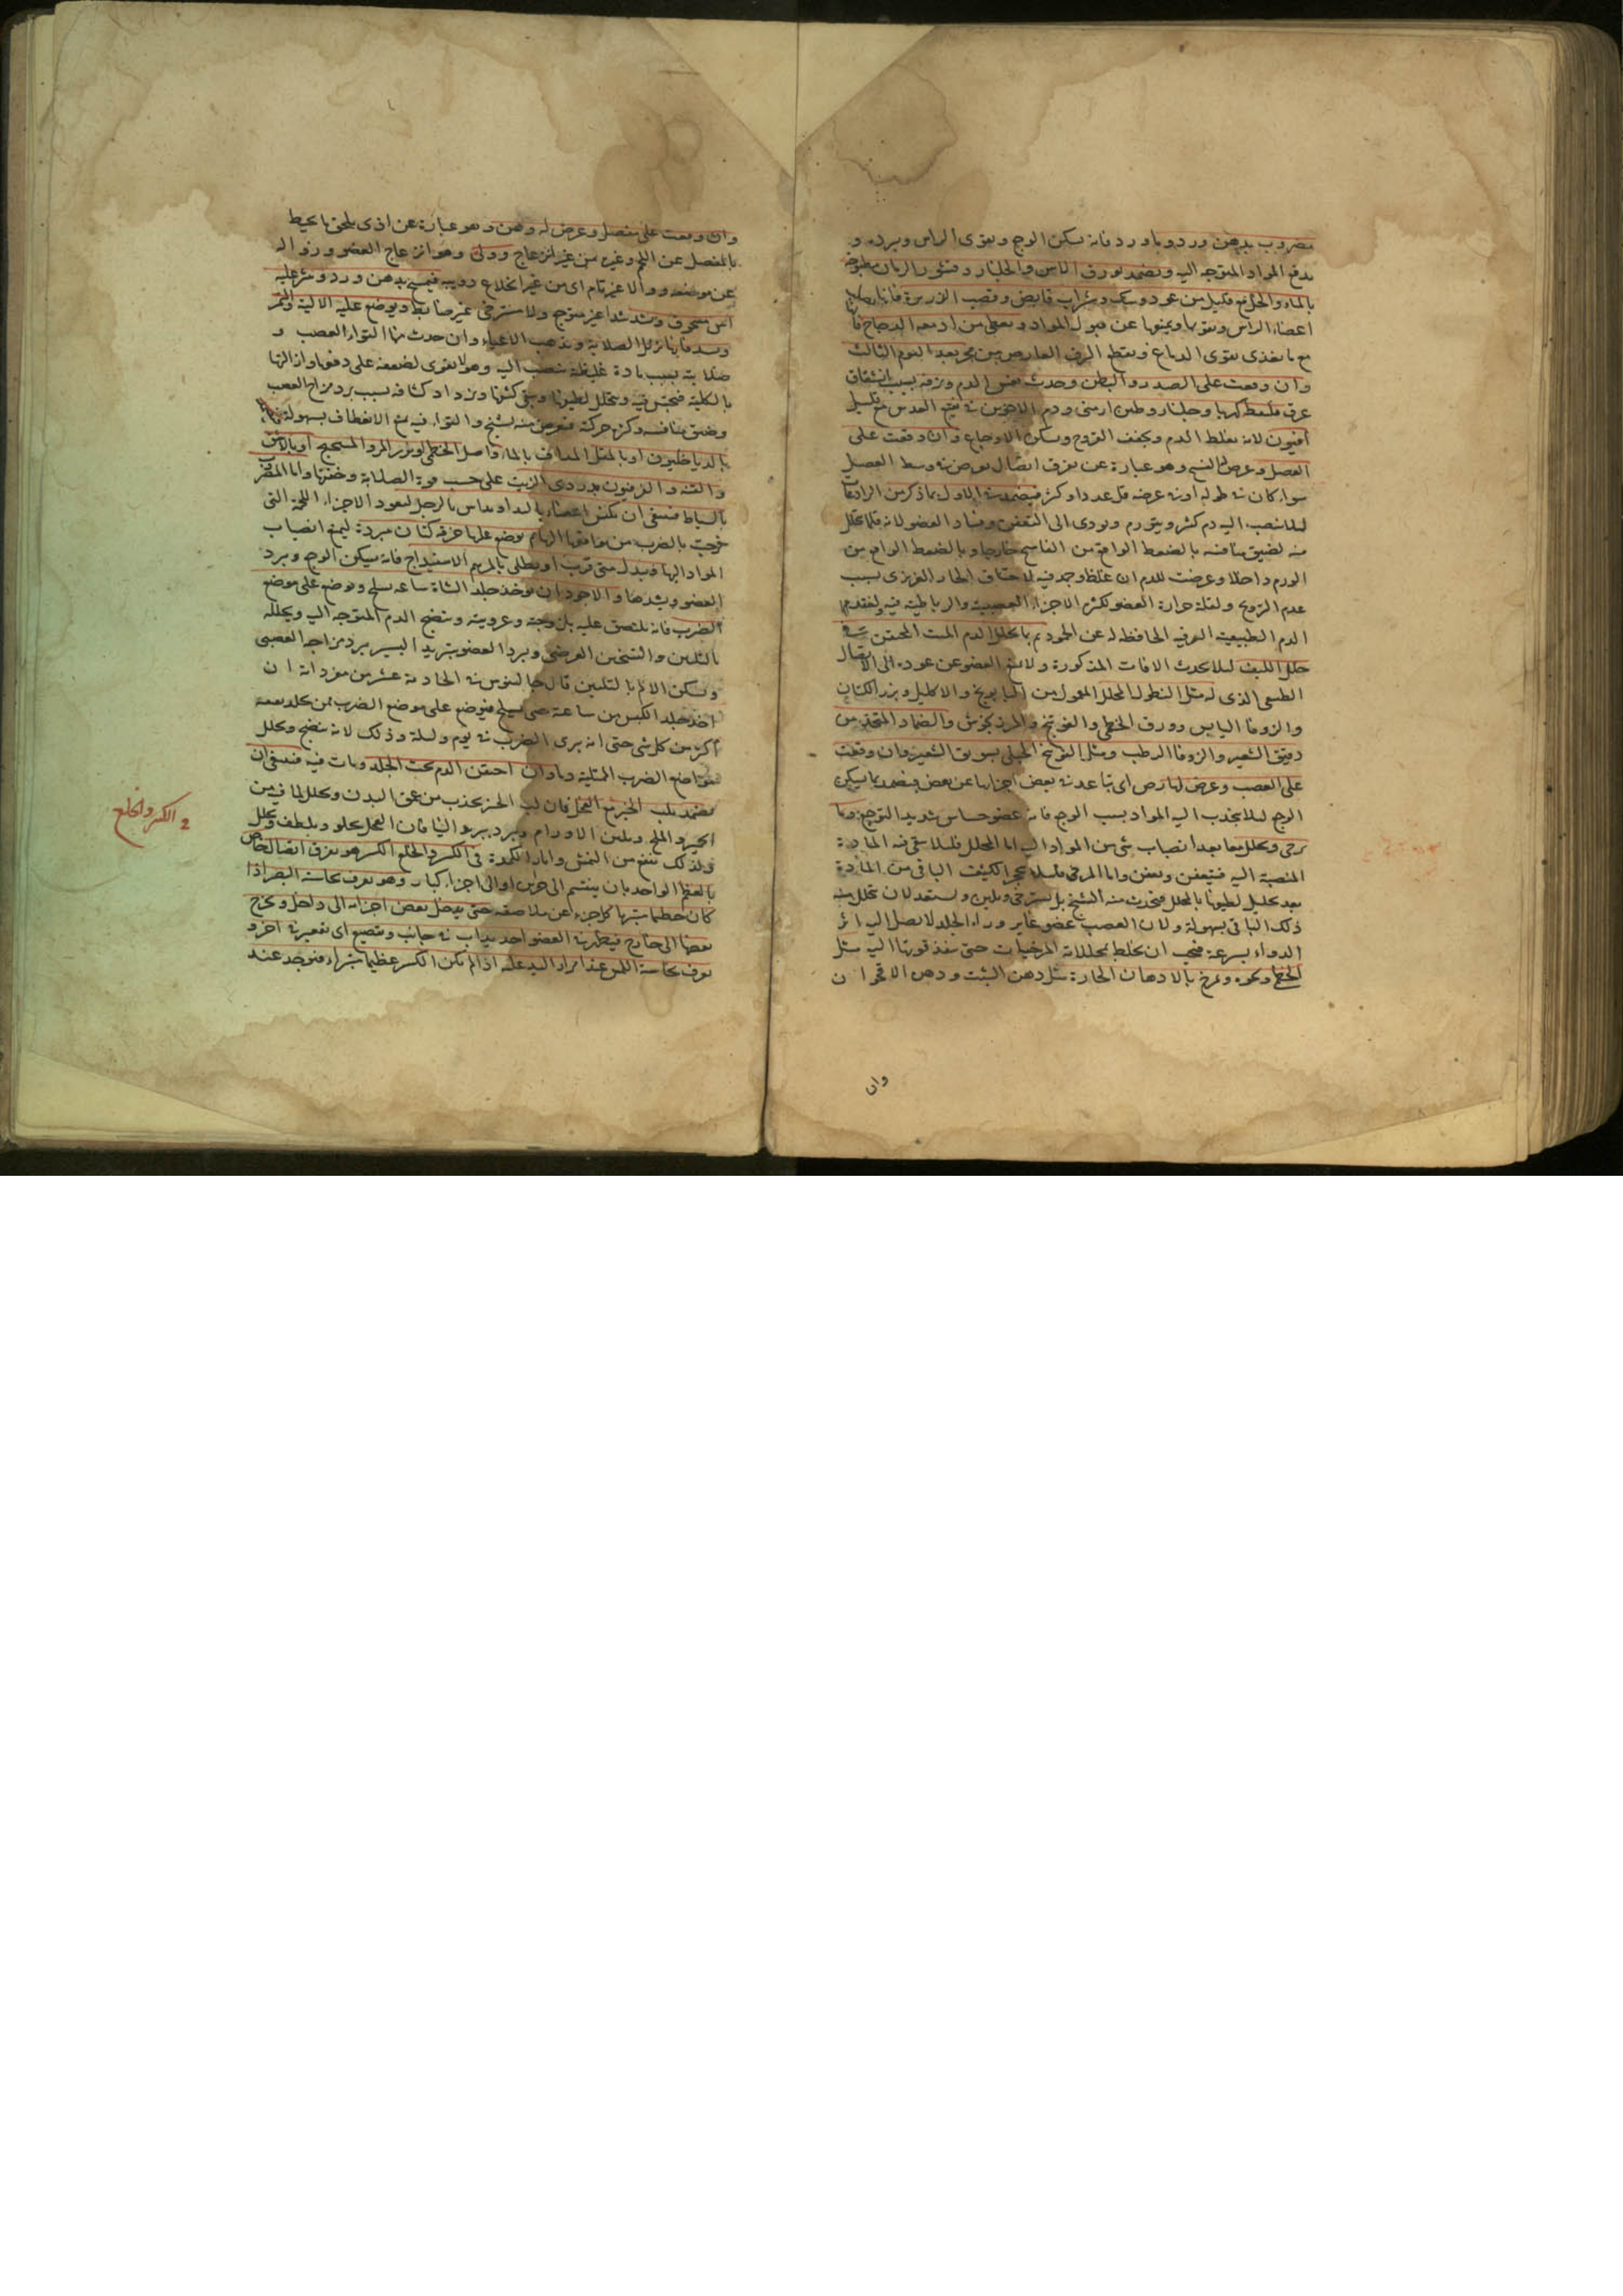 مضروب بدهن ورد وماورد فانه يسكن الوجع ويقوى الراس ويرده و
يدفع المواد المتوجه اليه ويضمد بورق الاس والجلنار وقشور الرمان مطبوخة
بالماء والخل مع قليل من عود وسك وشراب قابض وقصب الذريرة فانها
اعضاء الراس ويقويها ويمنعها عن قبول المواد ويعطى من ادمغة الدجاج
مع ما يغذى يقوى الدماغ ويقطع النزف العارض من بعد اليوم الثالث
وان وقعت على الصدر والبطن وحدث نفث الدم ونزفه بسبب انشقاق
عرق فليعط كهربا وجلنار وطين ارمنى ودم الاخوين فى نقيع العدس مع قليل
افيون لانه يغلظ الدم ويجفف القروح ويسكن الاوجاع وان وقعت على
العضل وعرض الفسخ وهو عبارة عن تفرق اتصال يعرض فى وسط العضل
سواء كان فى طوله او فى عرضه قل عدده او كثر فيضمد فى الاول بما ذكر من الرادعات
لئلا ينصب اليه دم كثير ويتورم ويودى الى التعفن وفساد العضو لانه قلما يتحلل
منه لضيق منافسه بالضغط الواقع من الفاسخ خارجا وبالضغط الواقع من
الورم داخلا وعرضت للدم ان غلظ وجمد فيه لاختناق الحار الغريزى بسبب
عدم التروح ولقلة حرارة العضو لكثرة الاجزاء العصبية والرباطية فيه ولفقد
الدم الطبيعية العرقية الحافظة له عن الجمود ثم بما يحلل الدم الميت المحتقن فى
خلل الليف لئلا يحدث الافات المذكورة ولا يمنع العضو عن عوده الى الاتصال
الطبيعى الذى له مثل النطول المحلل المعمول من البابونج والاكليل وبزر الكتان
والزوفا اليابس وورق الخطمى والفوتنج والمرزنجوش والضماد المتخذ من
دقيق الشعير والزوفا الرطب ومثل الفوتنج الجبلى بسويق الشعير وان وقعت
على العصب وعرض لها رض اى تباعد فى بعض اجزايها عن بعض فيضمد بما يسكن
الوجع لئلا يجذب اليه المواد بسبب الوجع فانه عضو حساس شديد التوجع وبما
يرخى ويحلل معا بعد انصباب شى من المواد اليه اما المحلل فلئلا يبقى فيه المادة
المنصبة اليه فيتعفن ويعفن واما المرخى فلئلا يتحجر الكثيف الباقى من المادة
بعد تحليل لطيفها بالمحلل فيحدث منه التشنج بل يسترخى ويلين ويستعد لان يتحلل منه
ذلك الباقى بسهولة ولان العصب عضو غاير وراء الجلد لا يصل اليه اثر
الدواء بسرعة فيجب ان يخلط بمحللاته المرخيات حتى ينفذ قوتها اليه مثل
الخطمى ونحوه ويمرخ بالادهان الحارة مثل دهن الشبت ودهن الاقحوان
وان
وان وقعت على مفصل وعرض له وهن وهو عبارة عن اذى يلحق ما يحيط
بالمفصل عن اللحم وغيره من غير انزعاج ووثى وهو انزعاج العضو وزواله
عن موضعه زوالا غير تام اى من غير انخلاع فيمسح بدهن ورد وينثر عليه
اس مسحوق ويشد شدا غير موجع ولا مسترخى غير ضاغط ويوضع عليه الالية والتمر
فانها تزيل الصلابة ويذهب الاعياء وان حدث منها التواء العصب و
صلابته بسبب مادة غليظة تنصب اليه وهو لا يقوى لضعفه على دفعها وازالتها
بالكلية فيحتبس فيه ويتحلل لطيفها ويبقى كثيفها ويزداد كثافة بسبب برد مزاج العصب
وضيق منافسه وكثرة حركته فيعرض منه تشنج والتواء فيه يمنع الانعطاف بسهولة
بالدياخليون او بالمقل المذاف بالماء واصل الخطمى وبزر المرو
والقنه والزفيون بدردى الزيت على حسب قوة الصلابة وخفتها واما المضروب
بالسياط فينبغى ان يكبس اعضاه باليد او يداس بالرجل ليعود الاجزاء اللحمية التى
خرجت بالضرب من مواقعها اليها ثم يوضع عليها خرقة كتان مبردة ليمنع انصباب
المواد اليها ويبدل متى قرب او يطلى بالمرهم الاسفيداج فانه يسكن الوجع ويبرد
العضو ويشدها والاجود ان يوخذ جلد الشاة ساعة سلخ ويوضع على موضع
الضرب فانه يلتصق عليه بلزوجته وغرويته وينضج الدم المتوجه اليه ويحلله
بالتليين والتسخين العرضى ويبرد العضو بتبريد اليسير ببرد مزاجه العصبى
ويسكن الالم بالتليين قال جالينوس فى الحادية عشر من مفرداته ان
اخذ جلد الكبش من ساعة حين يسلخ فيوضع على موضع الضرب ممن جلد نفعه
اكثر من كل شى حتى انه يبرى الضرب فى يوم وليلة وذلك لانه ينضج ويحلل
مواضع الضرب الممتلية دما وان احتقن الدم تحت الجلد ومات فيه فينبغى ان
يضمد بلب الخبز مع الفجل فان لب الخبز يجذب من عمق البدن ويحلل لما فيه من
الخمير والملح ويلين الاورام ويبرد بردا فان الفجل يجلو ويلطف ويحلل
ولذلك ينفع من النمش واثار الكمودة فى الكسر والخلع الكسر هو تفرق اتصال خاص
بالعظم الواحد بان ينقسم الى جزئين او الى اجزاء كبار وهو يعرف بحاسة البصر اذا
كان عظيما متبريا كل جزء عن ملاصقه حتى يدخل بعض اجزائه الى داخل ويخرج
بعضها الى خارج فيظهر فى العضو احديداب فى جانب وتقصيع اى تقعير فى اخر و
يعرف بحاسة اللمس عند امرار اليد عليه اذا لم يكن الكسر عظيما متبريا فيوجد عند
فى الكسر والخلع